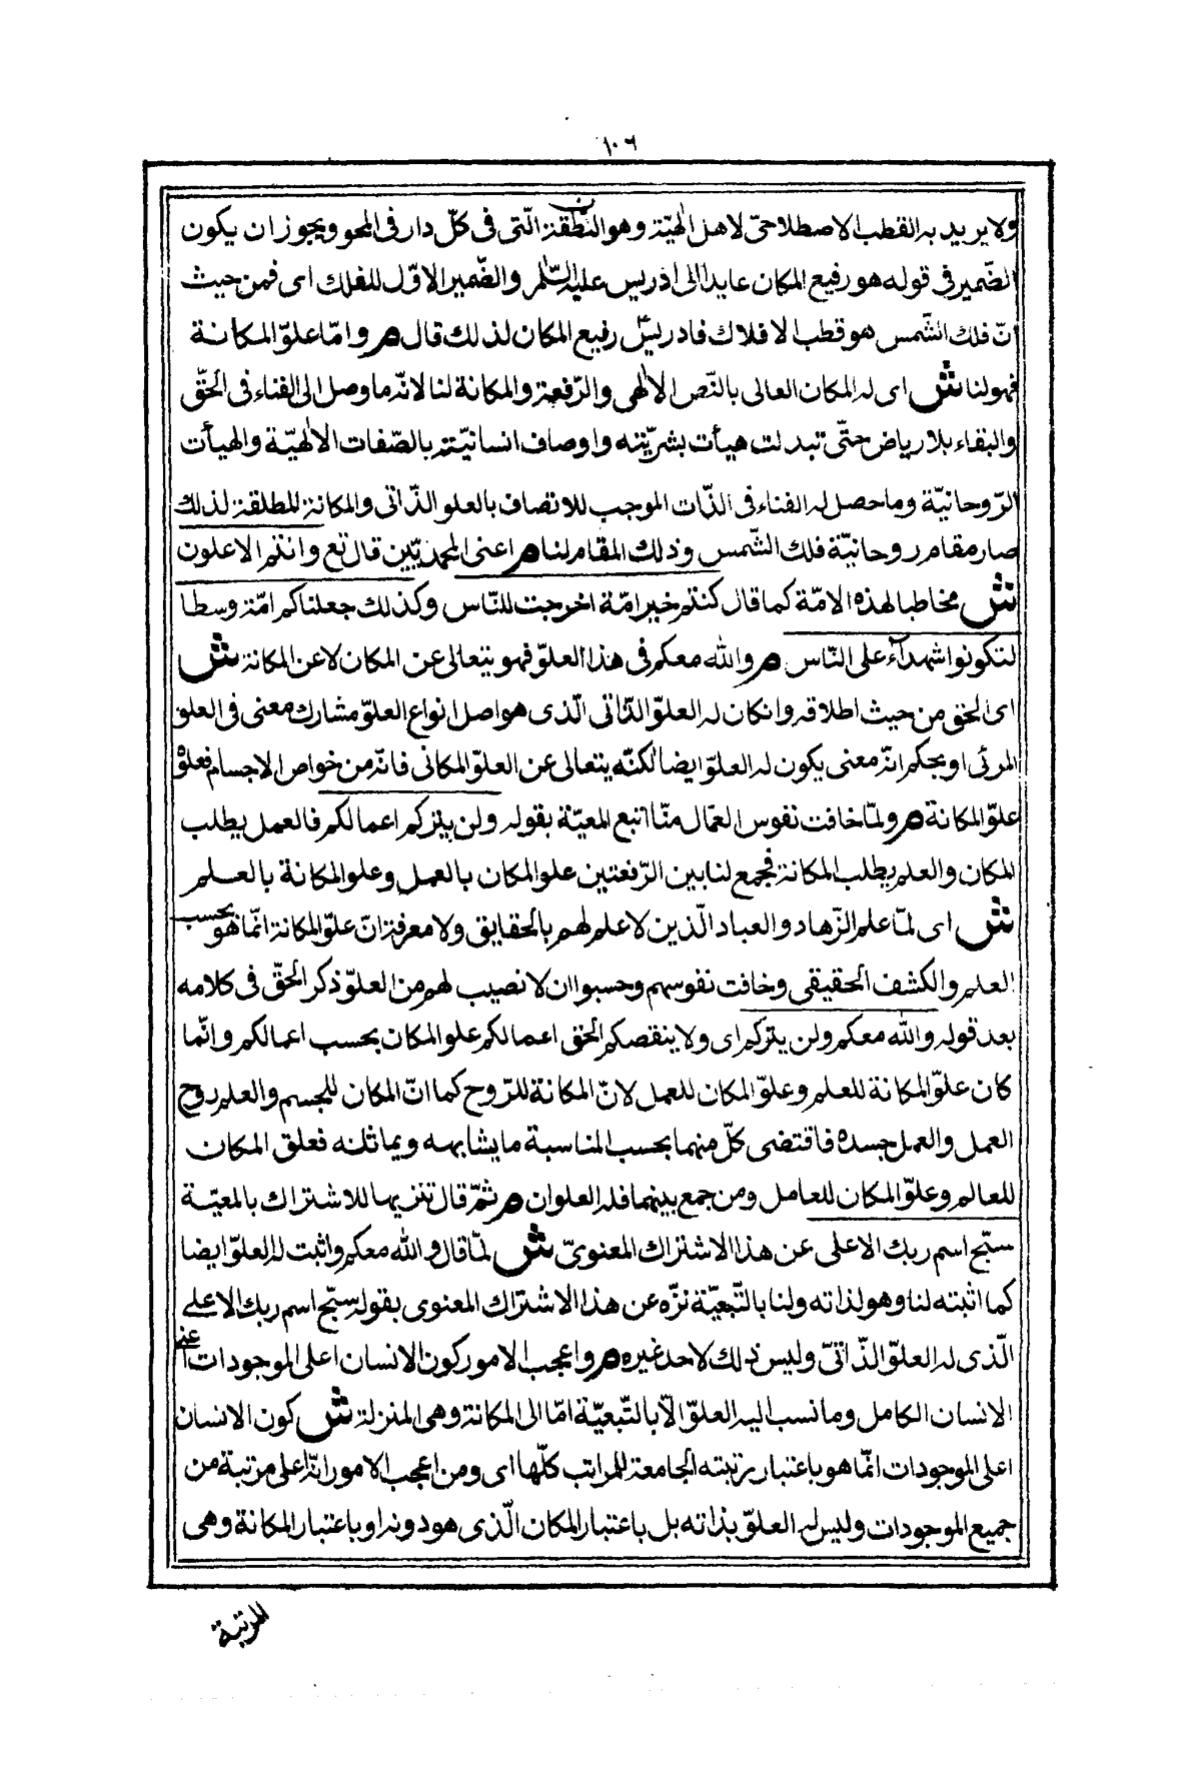 ١٠٦
ولا يريد به القطب الاصطلاحىّ لاهل الهيّة وهو النقطة الّتى فى كلّ دار فى المحو ويجوز ان يكون
الضّمير فى قوله هو رفيع المكان عايدا الى ادريس عليه السّلام والضّمير الاوّل للفلك اى فمن حيث
انّ فلك الشّمس هو قطب الافلاك فادريس رفيع المكان لذلك قال م وامّا علوّ المكانة
فهو لنا ش اى له المكان العالى بالنّص الالٰهى والرّفعة والمكانة لنا لانّه ما وصل الى الفناء فى الحقّ
والبقاء به بل ارتاض حتّى تبدلت هيأت بشريّته واوصاف انسانيّته بالصّفات الالٰهيّة والهيأت
الرّوحانيّة وما حصل له الفناء فى الذّات الموجب للاتصاف بالعلو الذّاتى والمكانة المطلقة لذلك
صار مقام روحانيّة فلك الشّمس وذلك المقام لنا م اعنى المحمديّين قال تع وانتم الاعلون
ش مخاطبا لهذه الامّة كما قال كنتم خير امّة اخرجت للنّاس وكذلك جعلناكم امّة وسطا
لتكونوا شهدآء على النّاس م والله معكم فى هذا العلوّ فهو يتعالى عن المكان لا عن المكانة ش
اى الحقّ من حيث اطلاقه وانكان له العلوّ الذّاتى الّذى هو اصل انواع العلوّ مشارك معنى فى العلو
المرئى او بحكم انّه معنى يكون له العلوّ ايضا لكنّه يتعالى عن العلوّ المكانى فانّه من خواص الاجسام فعلوّه
علوّ المكانة م ولمّا خافت نفوس العمّال منّا اتبع المعيّة بقوله ولن يتركم اعمالكم فالعمل يطلب
المكان والعلم يطلب المكانة فجمع لنا بين الرّفعتين علو المكان بالعمل وعلو المكانة بالعلم
ش اى لمّا علم الزّهاد والعباد الّذين لا علم لهم بالحقايق ولا معرفة انّ علوّ المكانة انّما هو بحسب
العلم والكشف الحقيقى وخافت نفوسهم وحسبوا ان لا نصيب لهم من العلوّ ذكر الحقّ فى كلامه
بعد قوله والله معكم ولن يتركم اى ولا ينقصكم الحق اعمالكم علو المكان بحسب اعمالكم وانّما
كان علوّ المكانة للعلم وعلوّ المكان للعمل لانّ المكانة للرّوح كما انّ المكان للجسم والعلم روح
العمل والعمل جسده فاقتضى كلّ منهما بحسب المناسبة ما يشابهه ويماثله فعلق المكان
للعالم وعلوّ المكان للعامل ومن جمع بينهما فله العلوان م ثمّ قال تنزيها للاشتراك بالمعيّة
سبّح اسم ربك الاعلى عن هذا الاشتراك المعنوىّ ش لمّا قال والله معكم واثبت له العلوّ ايضا
كما اثبته لنا وهو لذاته ولنا بالتّبعيّة نزّه عن هذا الاشتراك المعنوى بقوله سبّح اسم ربك الاعلى
الّذى له العلوّ الذّاتىّ وليس ذلك لاحد غيره م واعجب الامور كون الانسان اعلى الموجودات اعنى
الانسان الكامل وما نسب اليه العلوّ الّا بالتّبعيّة امّا الى المكانة وهى المنزلة ش كون الانسان
اعلى الموجودات انّما هو باعتبار مرتبته الجامعة للمراتب كلّها اى ومن اعجب الامور انّه اعلى مرتبة من
جميع الموجودات وليس له العلوّ بذاته بل باعتبار المكان الّذى هو دونه او باعتبار المكانة وهى
المرتبة